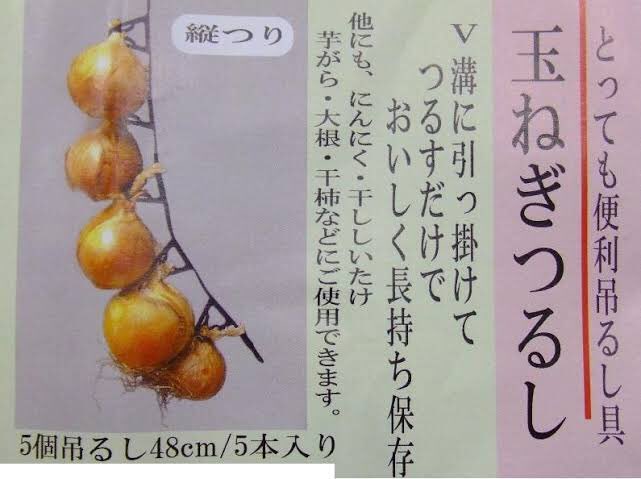 とっても便利吊るし具
玉ねぎつるし
V溝に引っ掛けて
つるすだけで
おいしく長持ち保存
他にも、にんにく・干ししいたけ
芋がら・大根・干柿などにご使用できます。
縦つり
5個吊るし48cm/5本入り